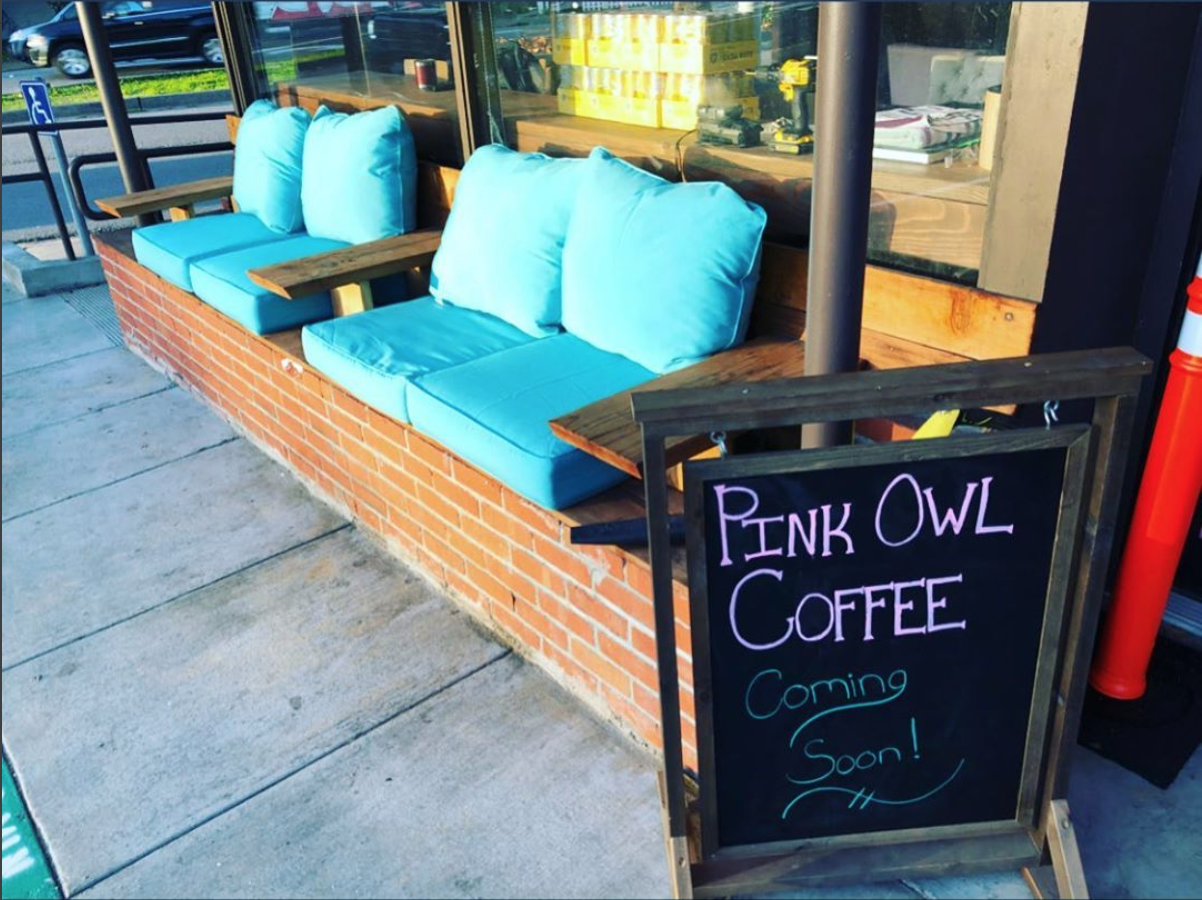 PINK OWL
COFFEE
Coming
Soon!